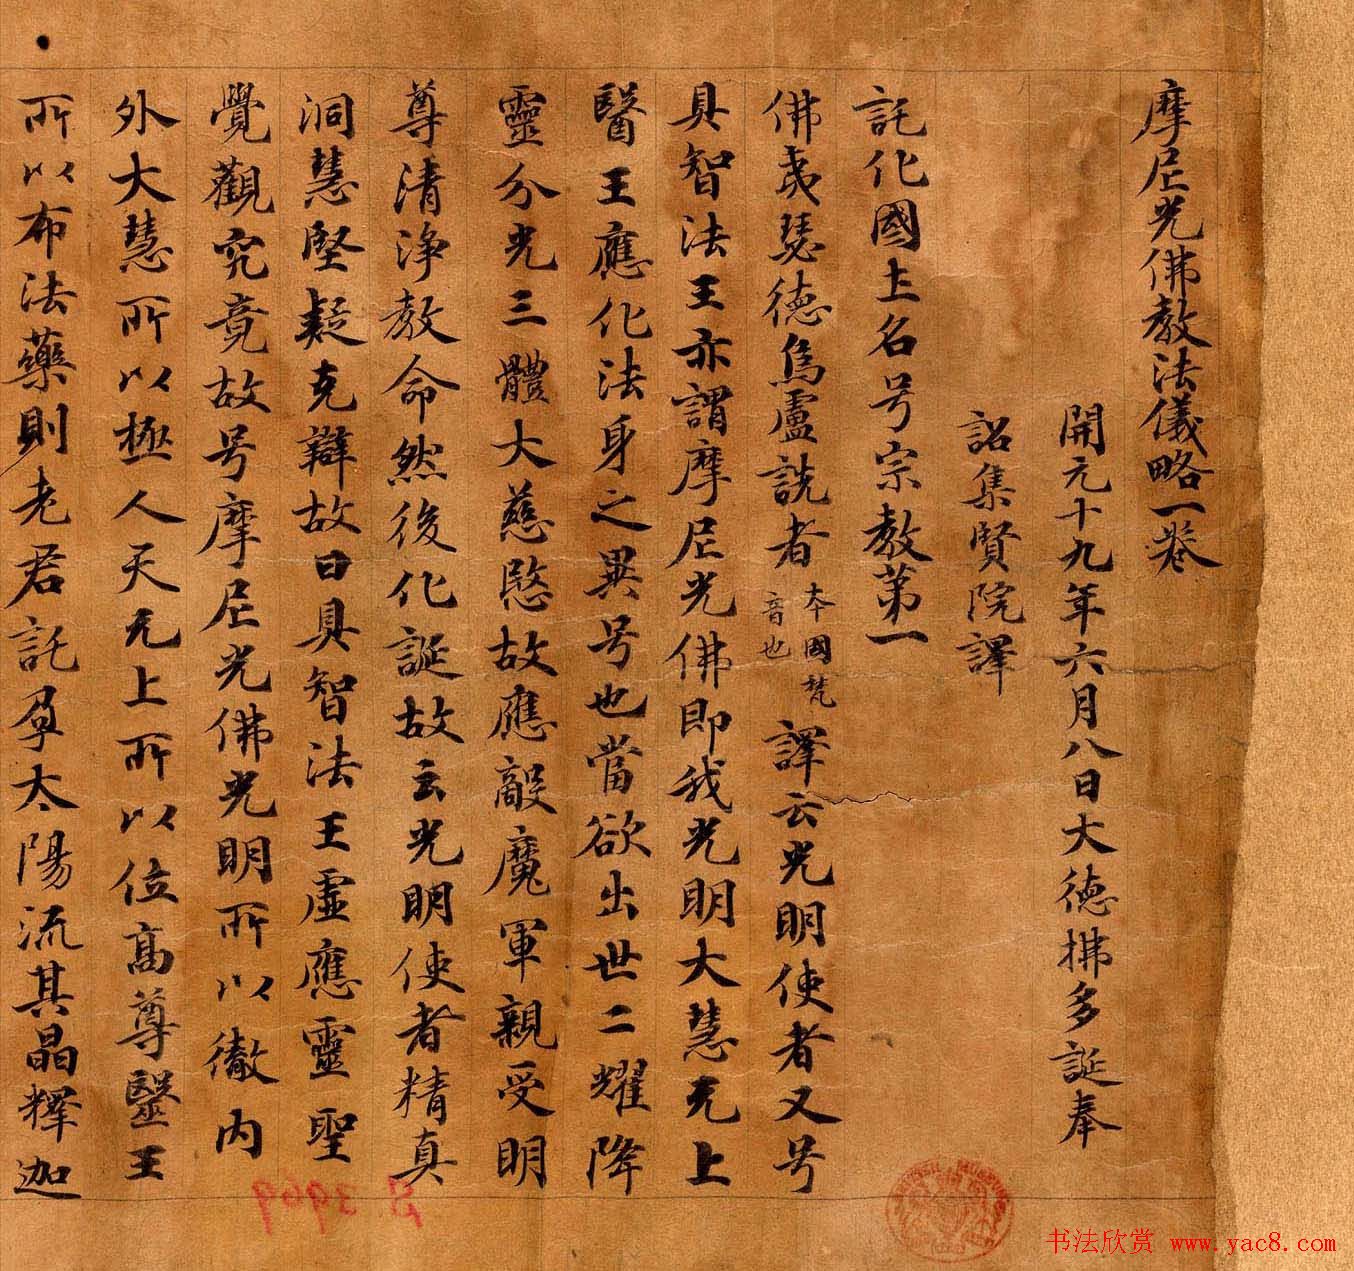 摩尼光佛教法儀略一卷
開元十九年六月八日大德拂多誕奉
詔集賢院譯
託化國主名号宗教第一
佛夷瑟德烏盧詵者本國梵音也譯云光明使者又号
具智法王亦謂摩尼光佛即我光明大慧无上
醫王應化法身之異号也當欲出世二耀降
靈分光三體大慈愍故應敵魔軍親受明
尊清淨教命然後化誕故云光明使者精真
洞慧堅疑克辯故曰具智法王虛應靈聖
覺觀究竟故号摩尼光佛光明所以徹內
外大慧所以極人天无上所以位高尊毉王
所以布法藥則老君託孕太陽流其晶釋迦
S. 3969
书法欣赏 www.yac8.com